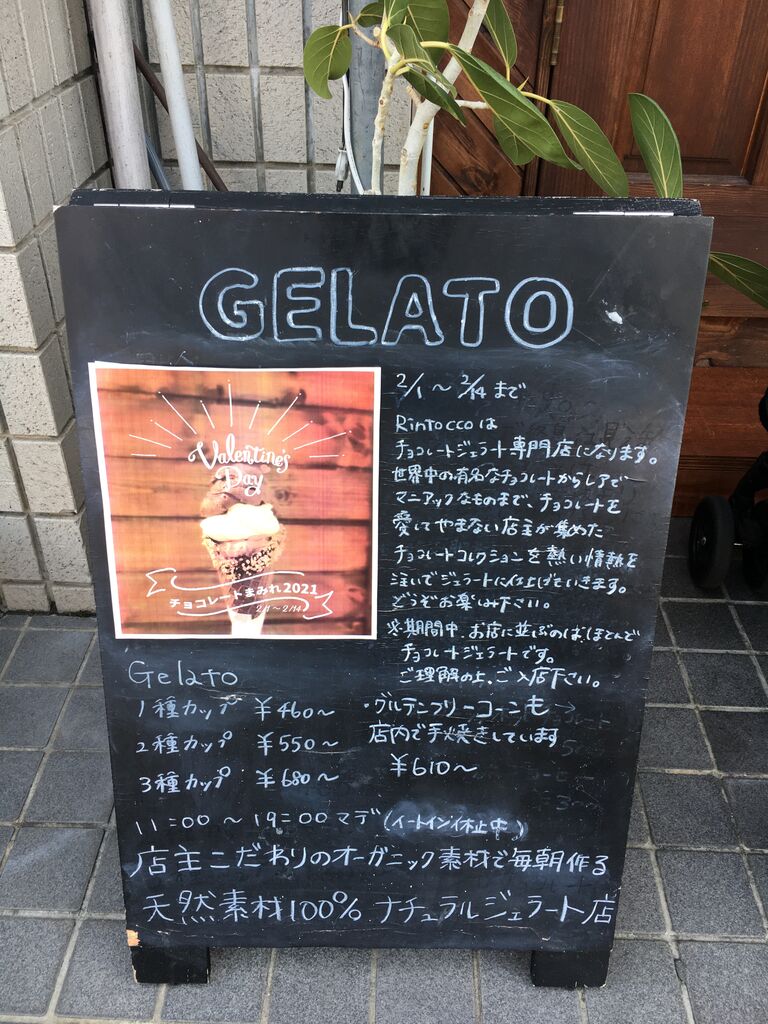 GELATO
Valentine's
Day
チョコレートまみれ2021
2/1～2/14
2/1 ～ 2/14 まで
Rintoccoは
チョコレートジェラート専門店になります。
世界中の有名なチョコレートからレアで
マニアックなものまで、チョコレートを
愛してやまない店主が集めた
チョコレートコレクションを熱い情熱を
注いでジェラートに仕上げていきます。
どうぞお楽しみ下さい。
※期間中、お店に並ぶのはほとんど
チョコレートジェラートです。
ご理解の上、ご入店下さい。
Gelato
1種カップ ¥460～
2種カップ ¥550～
3種カップ ¥680～
・グルテンフリーコーンも→
店内で手焼きしています
¥610～
11:00 ～ 19:00 マデ (イートイン休止中)
店主こだわりのオーガニック素材で毎朝作る
天然素材100% ナチュラルジェラート店